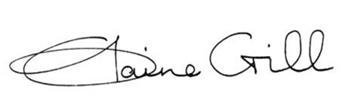 Elaine Gill